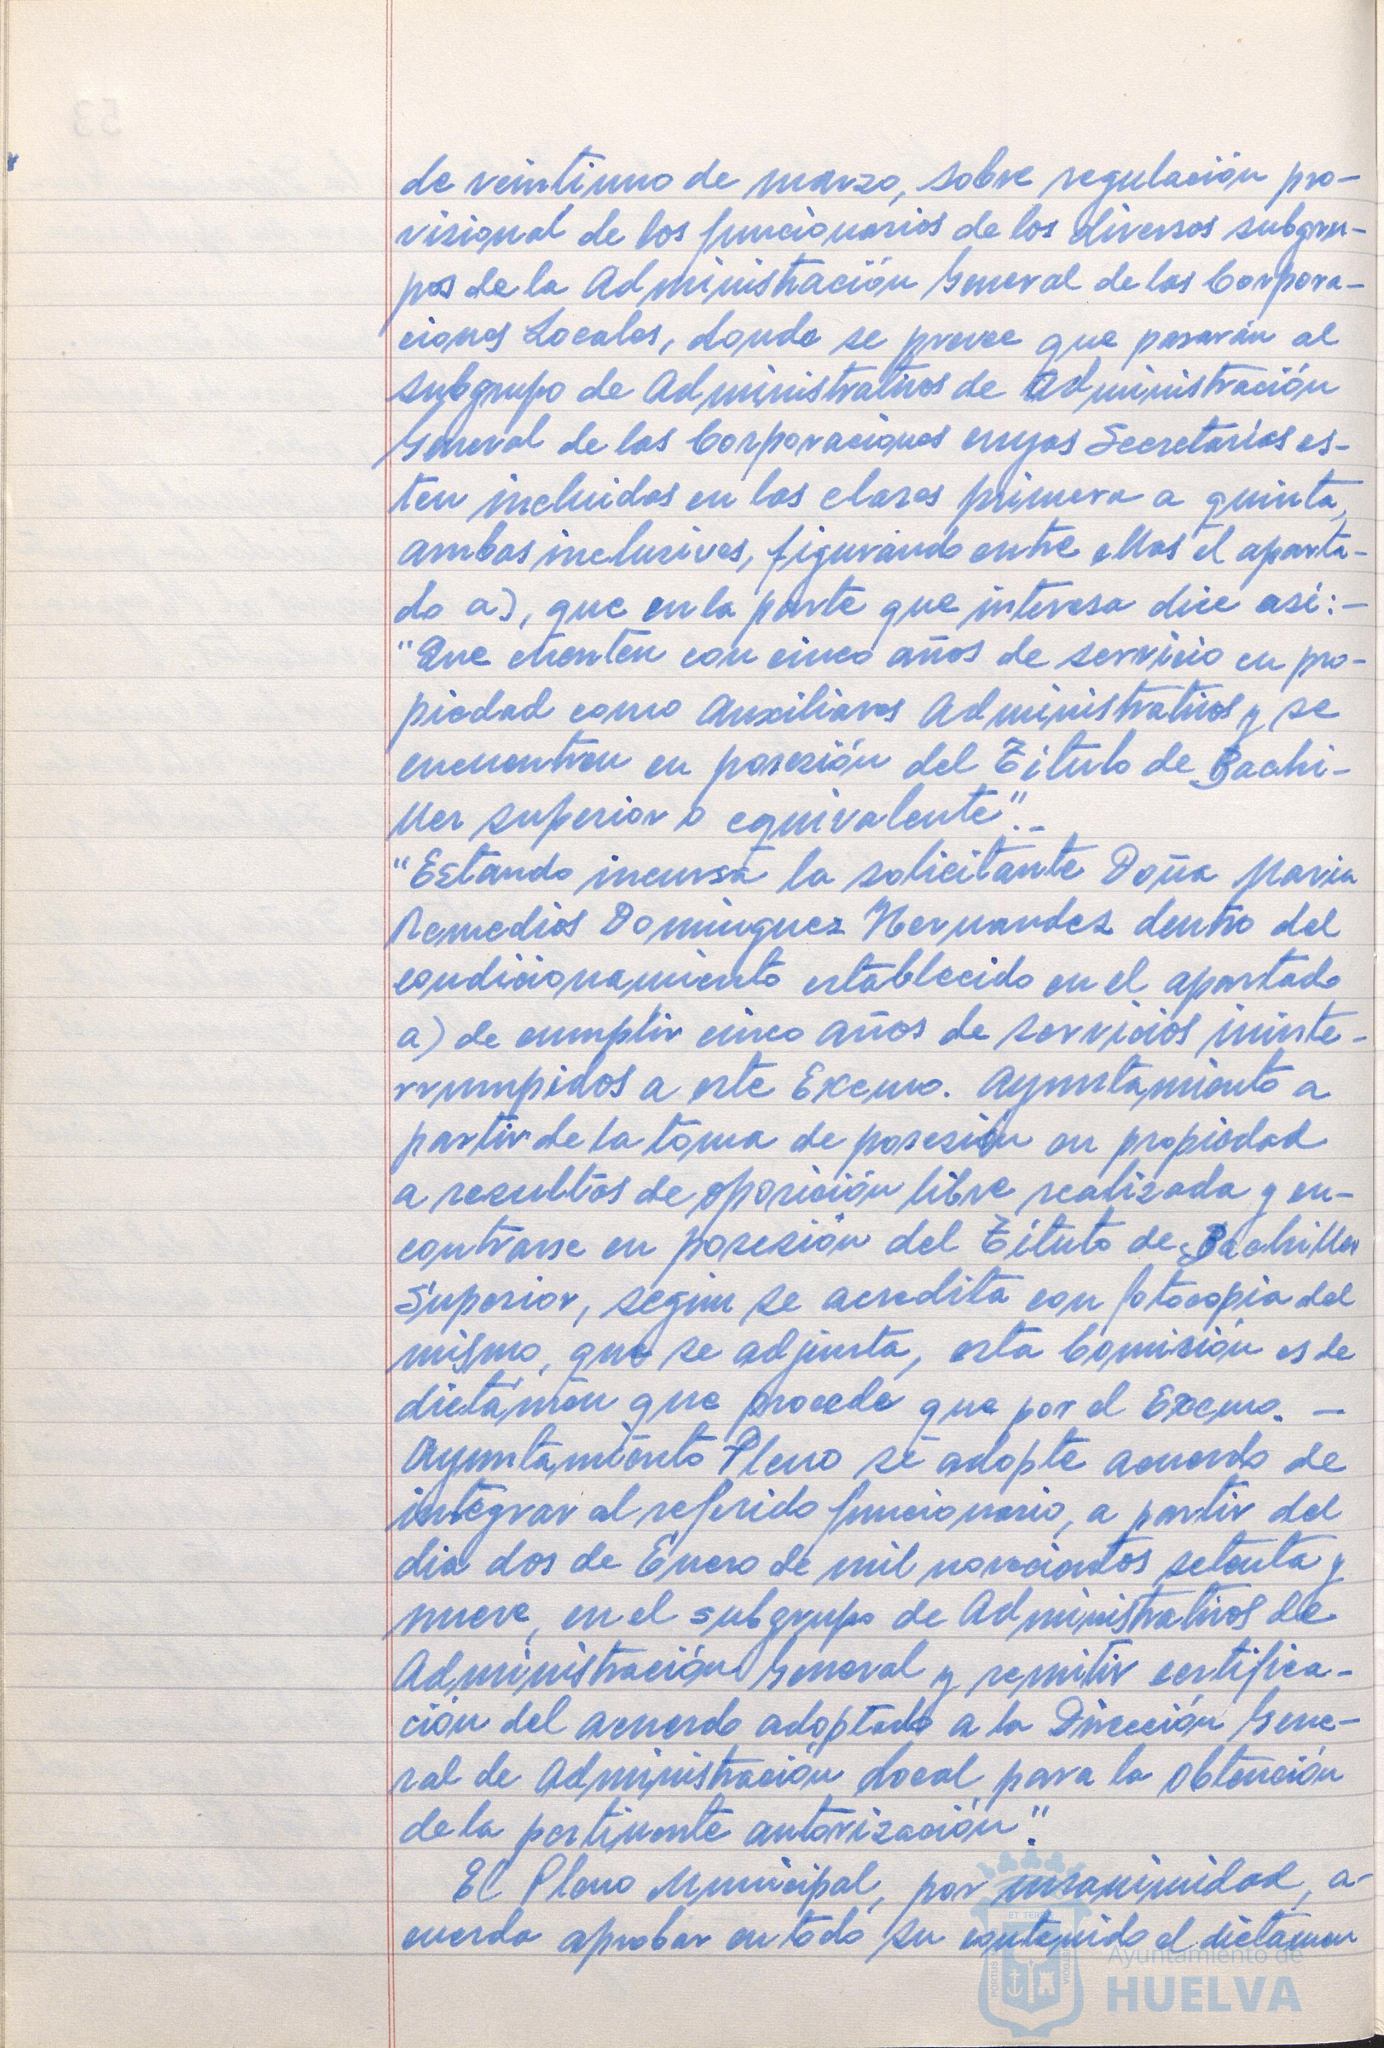 de veintiuno de marzo, sobre regulación pro-
visional de los funcionarios de los diversos subgru-
pos de la Administración General de las Corpora-
ciones Locales, donde se preve que pasarán al
subgrupo de Administrativos de Administración
General de las Corporaciones cuyas Secretarías es-
ten incluidas en las clases primera a quinta,
ambas inclusives, figurando entre ellas el aparta-
do a), que en la parte que interesa dice así:-
"Que cuenten con cinco años de servicio en pro-
piedad como Auxiliares Administrativos y se
encuentren en posesión del Título de Bachi-
ller superior o equivalente".-
"Estando incursa la solicitante Doña Maria
Remedios Dominguez Hernandez dentro del
condicionamiento establecido en el apartado
a) de cumplir cinco años de servicios ininte-
rrumpidos a este Excmo. Ayuntamiento a
partir de la toma de posesión en propiedad
a resultas de oposición libre realizada y en-
contrarse en posesión del Título de Bachiller
Superior, según se acredita con fotocopia del
mismo, que se adjunta, esta Comisión es de
dictámen que procede que por el Excmo. -
Ayuntamiento Pleno se adopte acuerdo de
integrar al referido funcionario, a partir del
dia dos de Enero de mil novecientos setenta y
nueve, en el subgrupo de Administrativos de
Administración General y remitir certifica-
ción del acuerdo adoptado a la Dirección Gene-
ral de Administración Local para la obtención
de la pertinente autorización".
El Pleno Municipal, por unanimidad, a-
cuerda aprobar en todo su contenido el dictamen
Ayuntamiento de
HUELVA